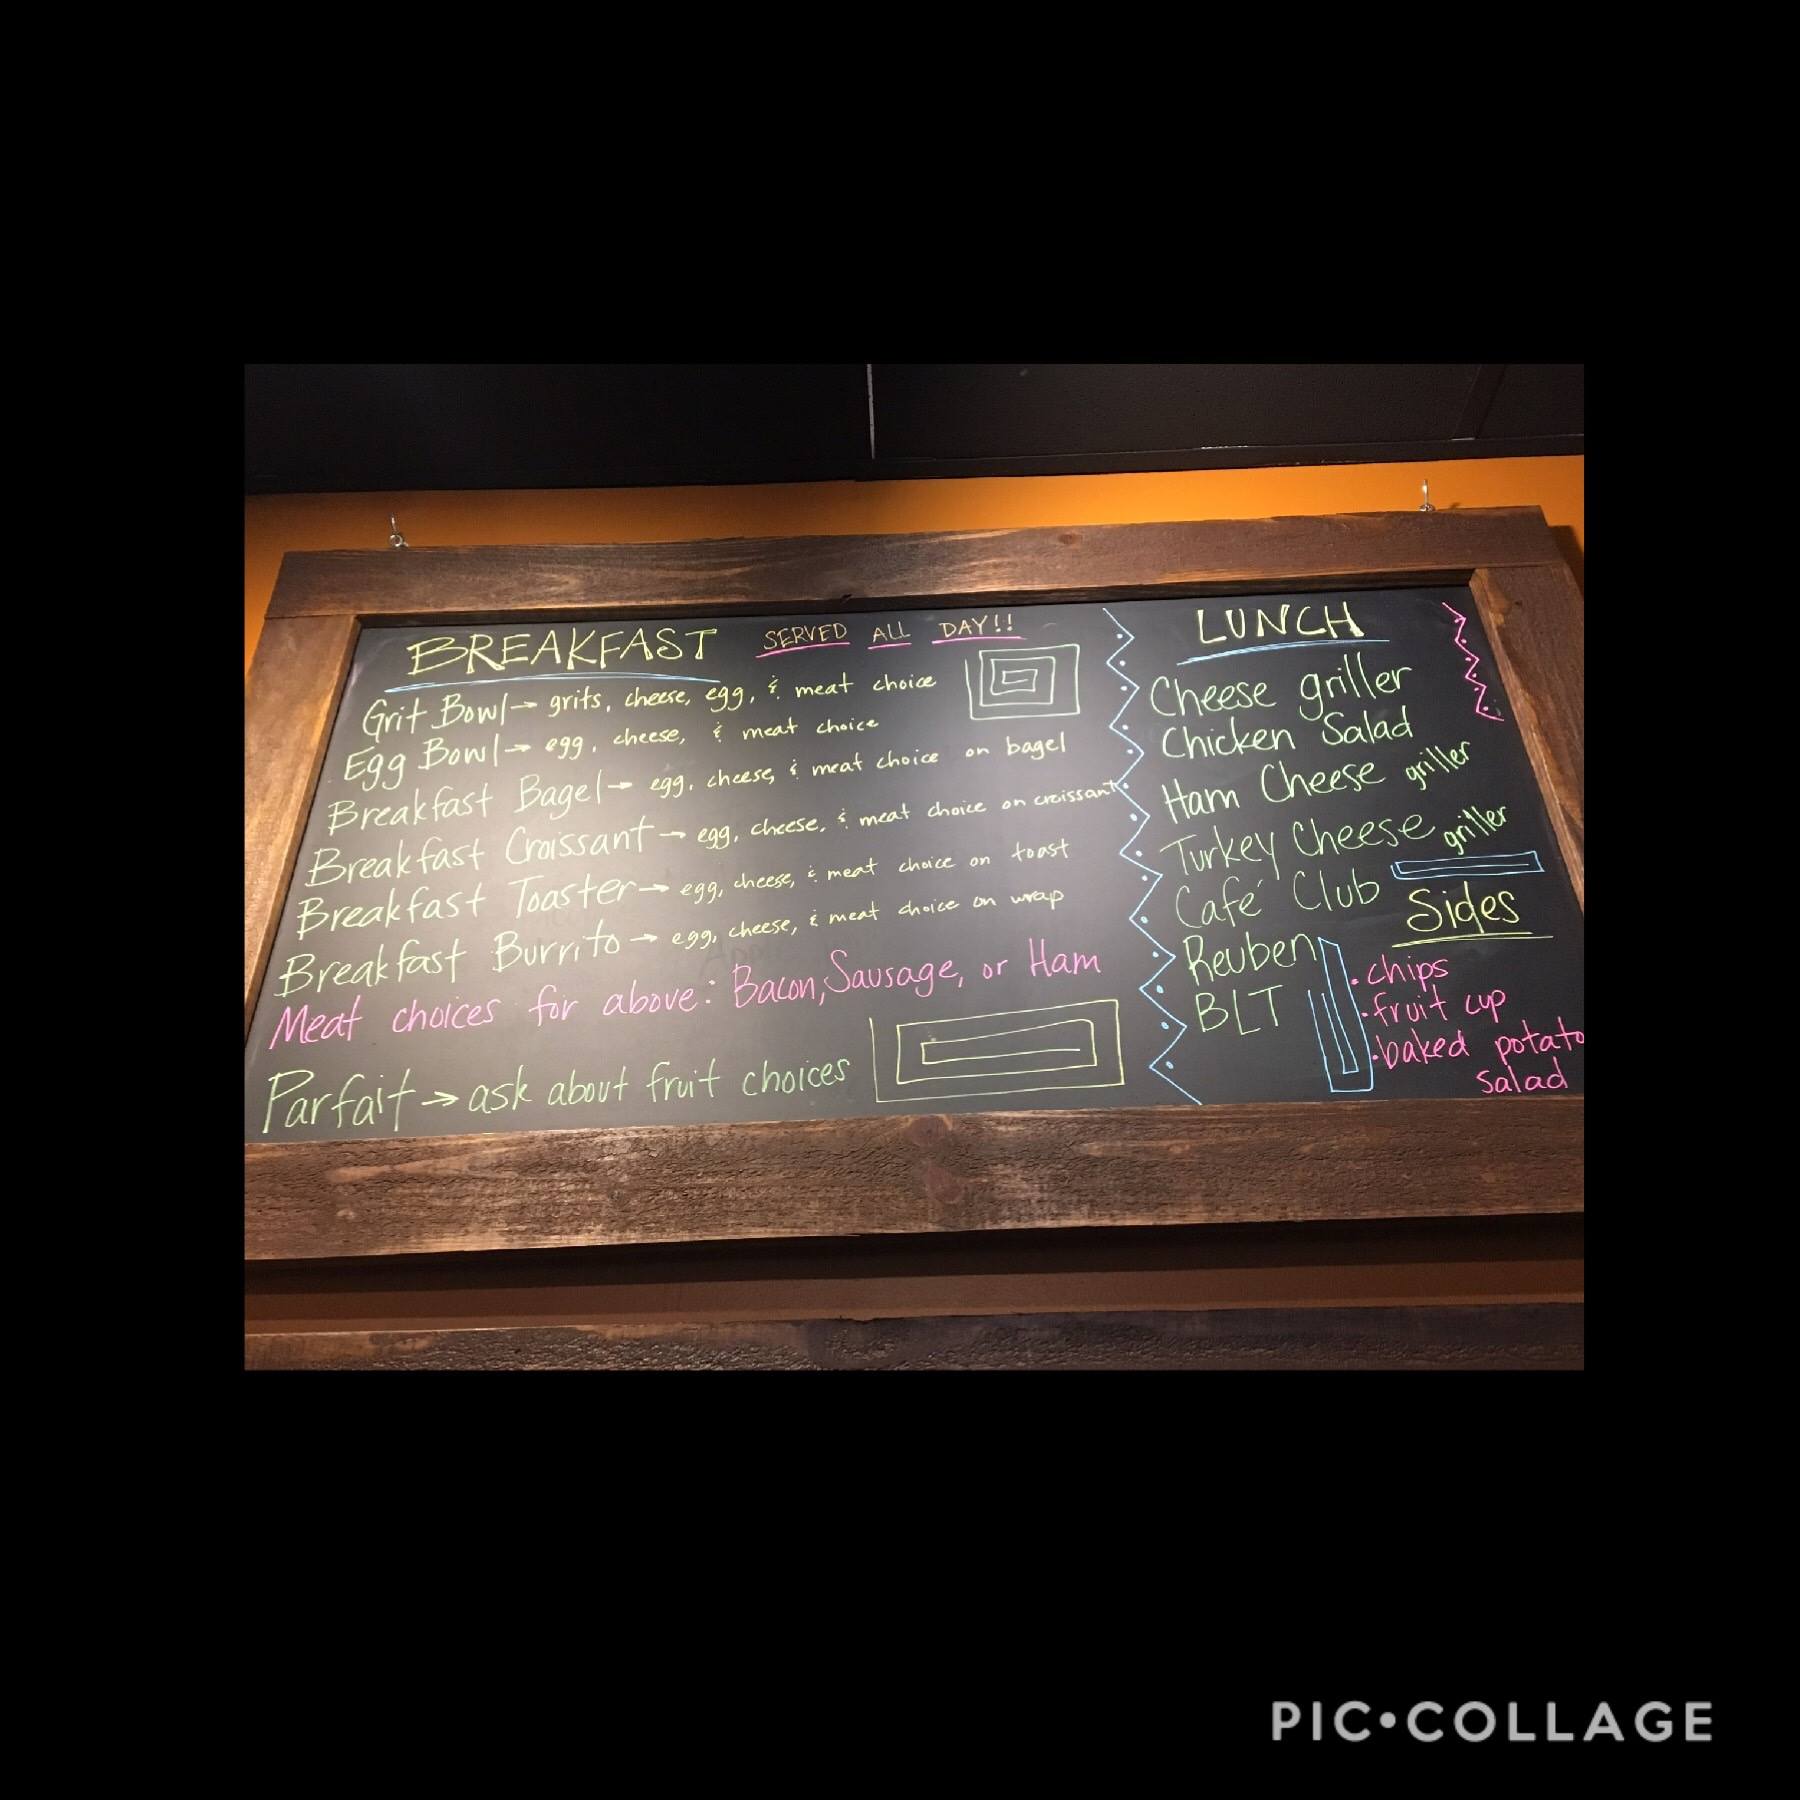 BREAKFAST SERVED ALL DAY!!
Grit Bowl → grits, cheese, egg, & meat choice
Egg Bowl → egg, cheese, & meat choice
Breakfast Bagel → egg, cheese, & meat choice on bagel
Breakfast Croissant → egg, cheese, & meat choice on croissant
Breakfast Toaster → egg, cheese, & meat choice on toast
Breakfast Burrito → egg, cheese, & meat choice on wrap
Meat choices for above: Bacon, Sausage, or Ham
Parfait → ask about fruit choices
LUNCH
Cheese griller
Chicken Salad
Ham Cheese griller
Turkey Cheese griller
Café Club
Reuben
BLT
Sides
• chips
• fruit cup
• baked potato
salad
PIC•COLLAGE